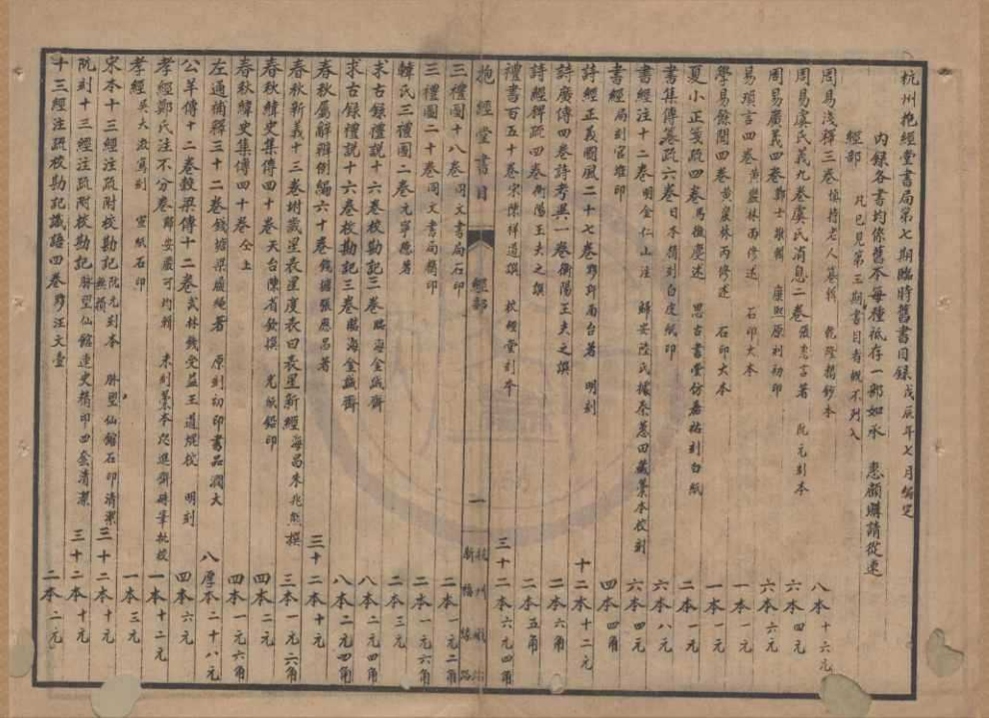 杭州抱經堂書局第七期臨時舊書目錄 戊辰年七月編定
內錄各書均係舊本每種祇存一部如承 惠顧購請從速
經部 凡已見第三期書目者概不列入
周易淺釋三卷 慎持老人纂輯 乾隆舊鈔本 八本十六元
周易虞氏義九卷虞氏消息二卷 張惠言著 阮元刻本 六本四元
周易廣義四卷 鄭士 輯 康熙原刻初印 六本六元
易瑣言四卷 黃巖林丙修述 石印大本 一本一元
學易餘閒四卷 黃巖林丙修述 石印大本 一本一元
夏小正箋疏四卷 馬徵慶述 思古書堂仿嘉祐刻白紙 二本一元
書集傳纂疏六卷 日本精刻白皮紙印 六本八元
書經注十二卷 明金仁山注 歸安陸氏據秦蕙田藏藁本校刻 六本四元
書經 局刻官堆印 四本四角
詩經正義國風二十七卷 鄂 著 明刻 十二本十二元
詩廣傳四卷詩考異一卷 衡陽王夫之撰 二本六角
詩經稗疏四卷 衡陽王夫之撰 二本五角
禮書百五十卷 宋陳祥道撰 校經堂刻本 三十二本六元四角
抱經堂書目 經部 一 杭州城 新梅 路
三禮圖十八卷 同文書局石印 二本一元二角
三禮圖二十卷 同文書局精印 二本一元六角
韓氏三禮圖二卷 元 著 二本三元
求古錄禮說十六卷校勘記三卷 臨海金鶚齋 八本二元四角
求古錄禮說十六卷校勘記三卷 臨海金鶚齋 八本二元四角
春秋屬辭辨例編六十卷 錢塘張應昌著 三十二本十元
春秋新義十三卷坿歲星表星度表日表星新經 海昌朱兆熊撰 三本一元六角
春秋緯史集傳四十卷 天台陳省欽撰 光紙鉛印 四本二元
春秋緯史集傳四十卷 仝上 四本一元六角
左通補釋三十二卷 錢塘梁履繩著 原刻初印書品潤大 八厚本二十八元
公羊傳十二卷穀梁傳十二卷 武林錢受益王道焜校 明刻 四本六元
孝經鄭氏注不分卷 歸安嚴可均輯 未刻藁本 進齋 筆批校 一本十二元
孝經 吳大澂寫刻 宣紙石印 一本三元
宋本十三經注疏附校勘記 阮元刻本 無損 脈望仙館石印清潔 三十二本十元
阮刻十三經注疏附校勘記 脈望仙館連史精印四套清潔 三十二本十元
十三經注疏校勘記識語四卷 黟汪文臺 二本二元